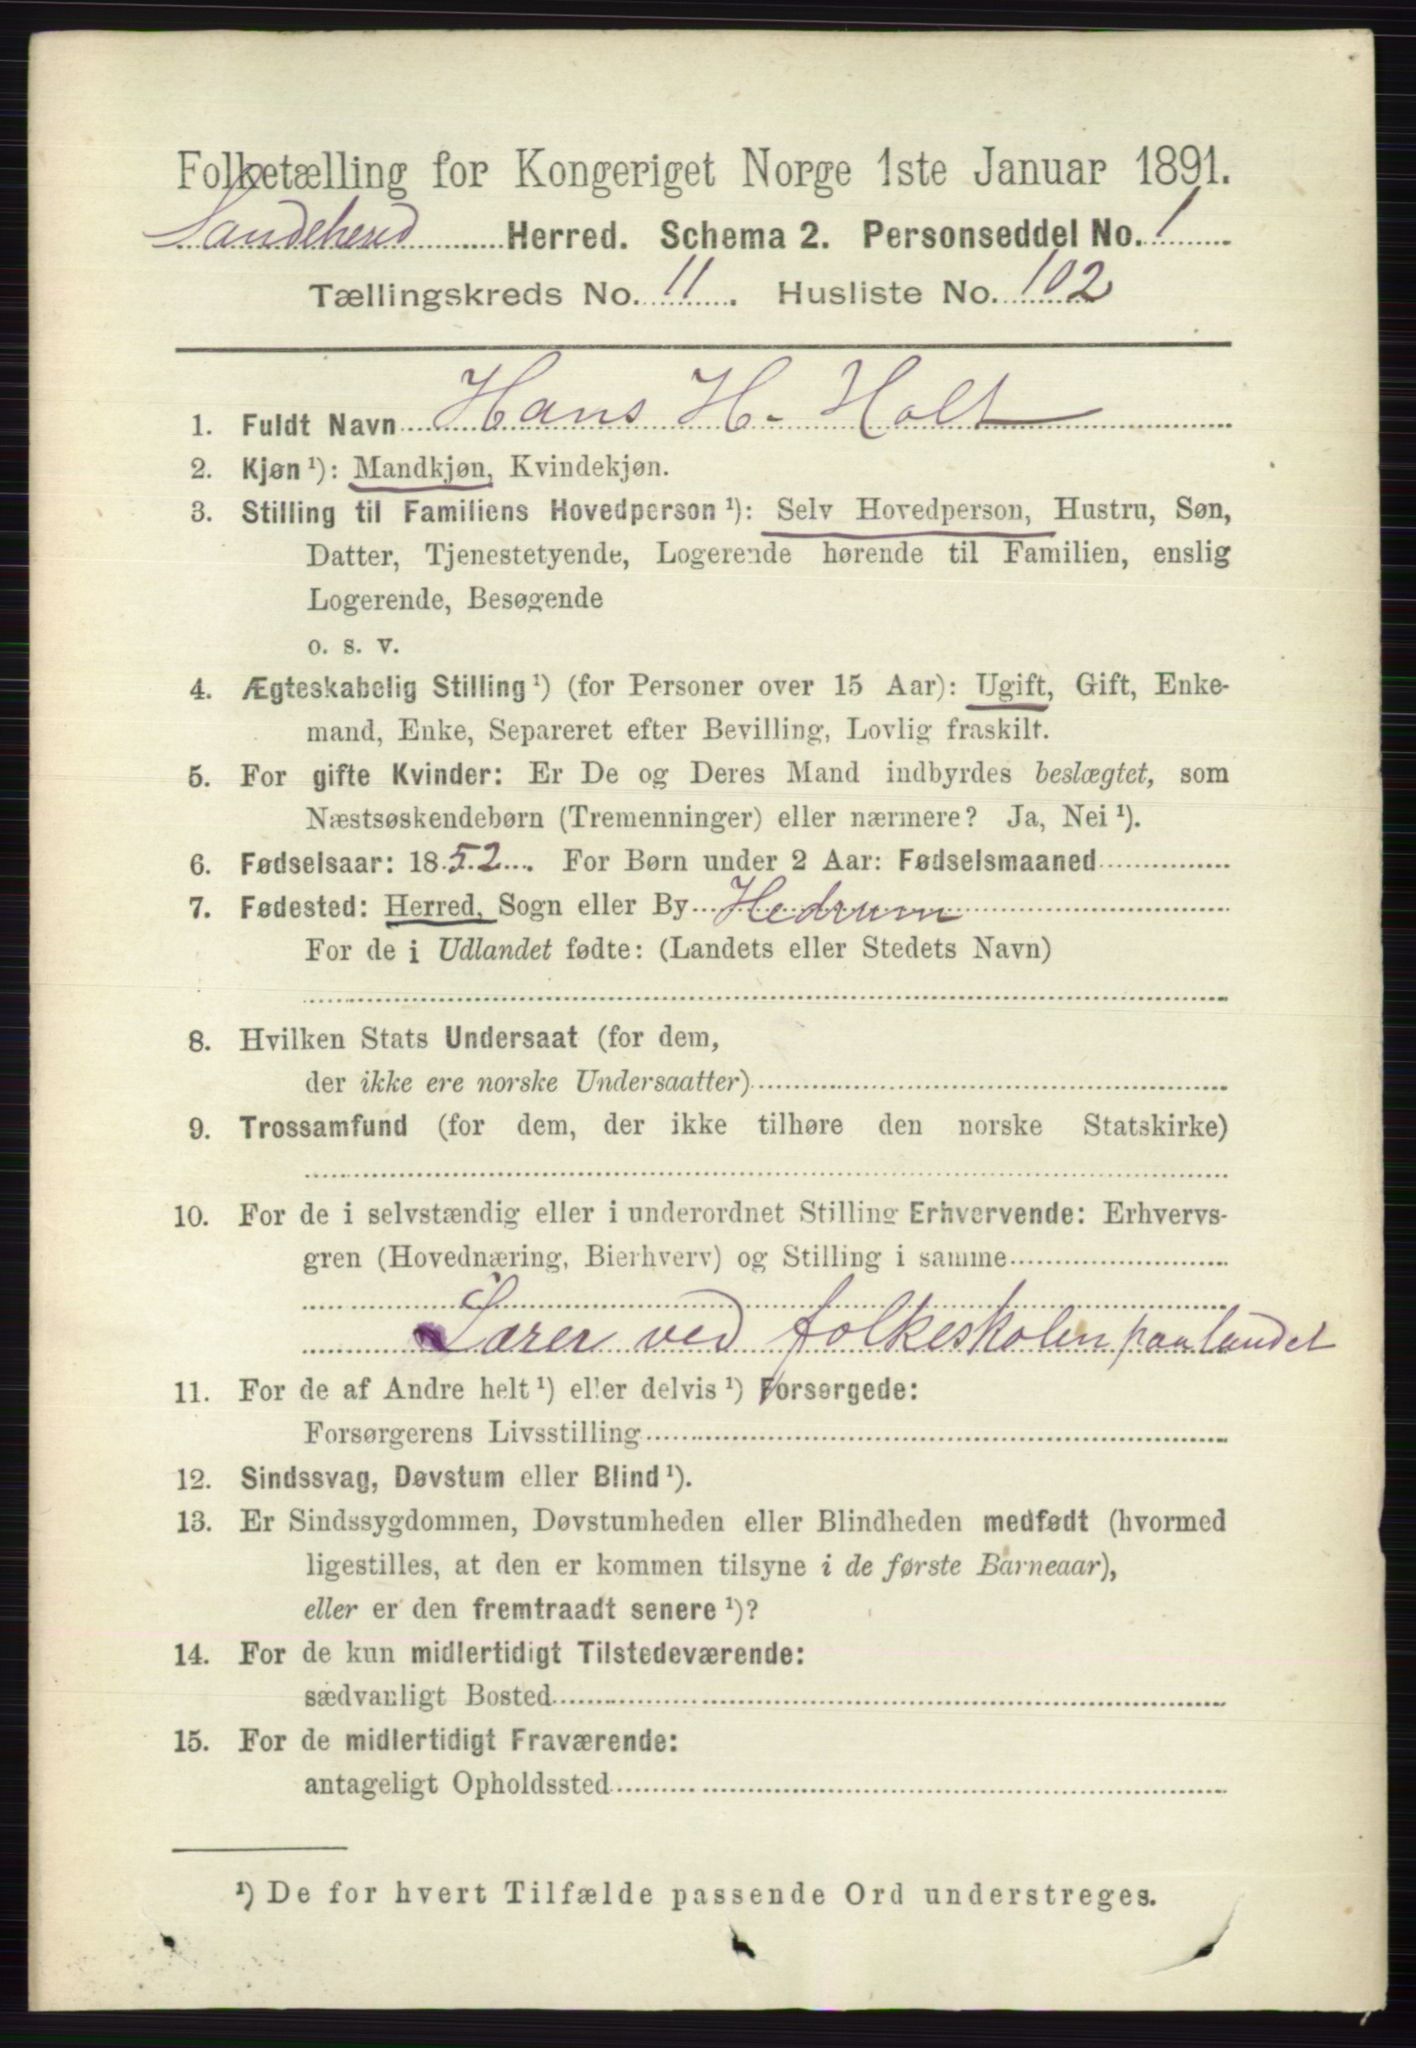 Folketælling for Kongeriget Norge 1ste Januar 1891.
Sandeherred Herred. Schema 2. Personseddel No. 1
Tællingskreds No. 11. Husliste No. 102
1. Fuldt Navn Hans H. Holt
2. Kjøn ¹): Mandkjøn, Kvindekjøn.
3. Stilling til Familiens Hovedperson ¹): Selv Hovedperson, Hustru, Søn,
Datter, Tjenestetyende, Logerende hørende til Familien, enslig
Logerende, Besøgende
o. s. v.
4. Ægteskabelig Stilling ¹) (for Personer over 15 Aar): Ugift, Gift, Enke-
mand, Enke, Separeret efter Bevilling, Lovlig fraskilt.
5. For gifte Kvinder: Er De og Deres Mand indbyrdes beslægtet, som
Næstsøskendebørn (Tremenninger) eller nærmere? Ja, Nei ¹).
6. Fødselsaar: 1852. For Børn under 2 Aar: Fødselsmaaned
7. Fødested: Herred, Sogn eller By Hedrum
For de i Udlandet fødte: (Landets eller Stedets Navn)
8. Hvilken Stats Undersaat (for dem,
der ikke ere norske Undersaatter)
9. Trossamfund (for dem, der ikke tilhøre den norske Statskirke)
10. For de i selvstændig eller i underordnet Stilling Erhvervende: Erhvervs-
gren (Hovednæring, Bierhverv) og Stilling i samme
Lærer ved folkeskolen paa landet
11. For de af Andre helt ¹) eller delvis ¹) Forsørgede:
Forsørgerens Livsstilling
12. Sindssvag, Døvstum eller Blind ¹).
13. Er Sindssygdommen, Døvstumheden eller Blindheden medfødt (hvormed
ligestilles, at den er kommen tilsyne i de første Barneaar),
eller er den fremtraadt senere ¹)?
14. For de kun midlertidigt Tilstedeværende:
sædvanligt Bosted
15. For de midlertidigt Fraværende:
antageligt Opholdssted
¹) De for hvert Tilfælde passende Ord understreges.